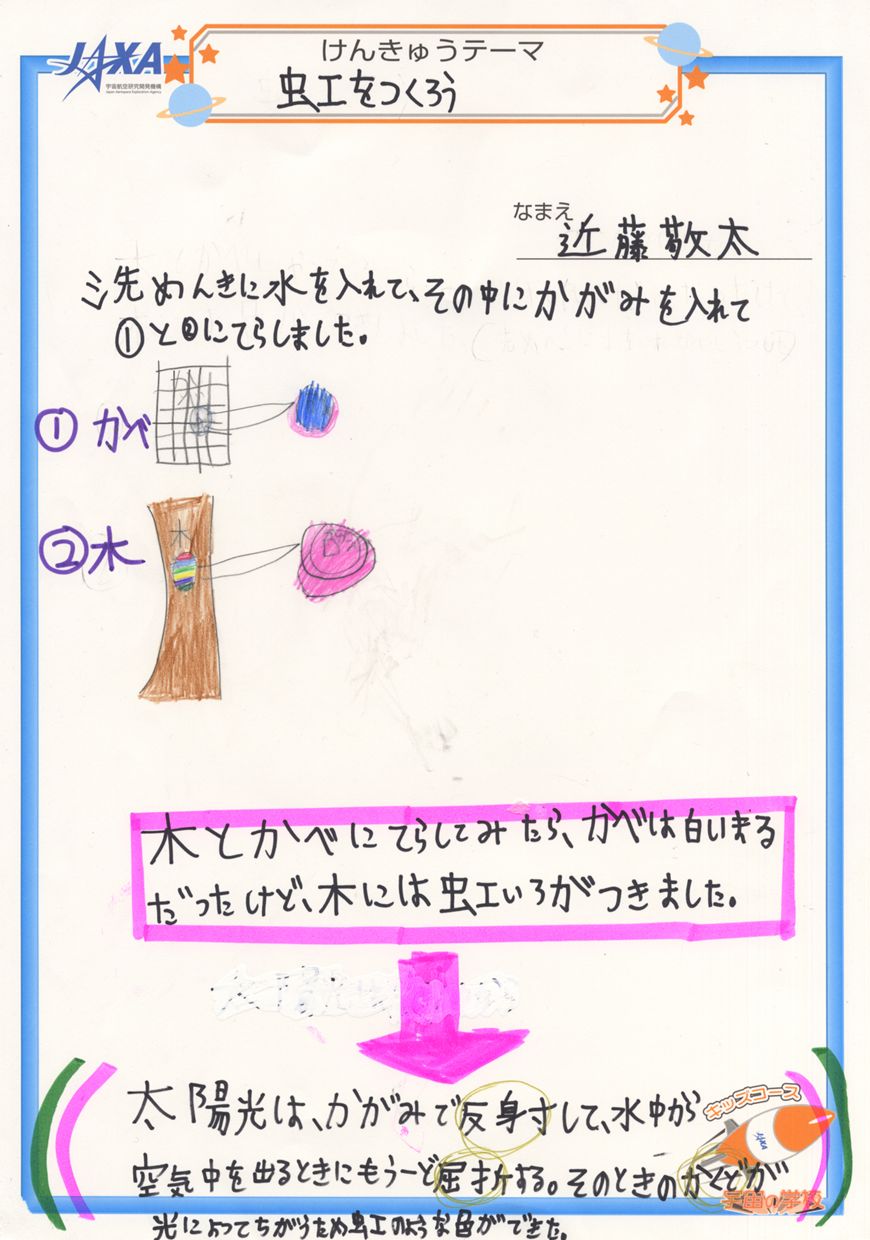 JAXA
宇宙航空研究開発機構
Japan Aerospace Exploration Agency
けんきゅうテーマ
虹をつくろう
なまえ
近藤敬太
ミ先めんきに水を入れて、その中にかがみを入れて
①と②にてらしました。
① かべ
②木
木
木とかべにてらしてみたら、かべは白いまる
だったけど、木には虹いろがつきました。
太陽光は、かがみで反射して、水中から
キッズコース
JAXA
空気中を出るときにもう一ど屈折する。そのときのかくどが
宇宙の学校
光によってちがうため虹のような色ができた。